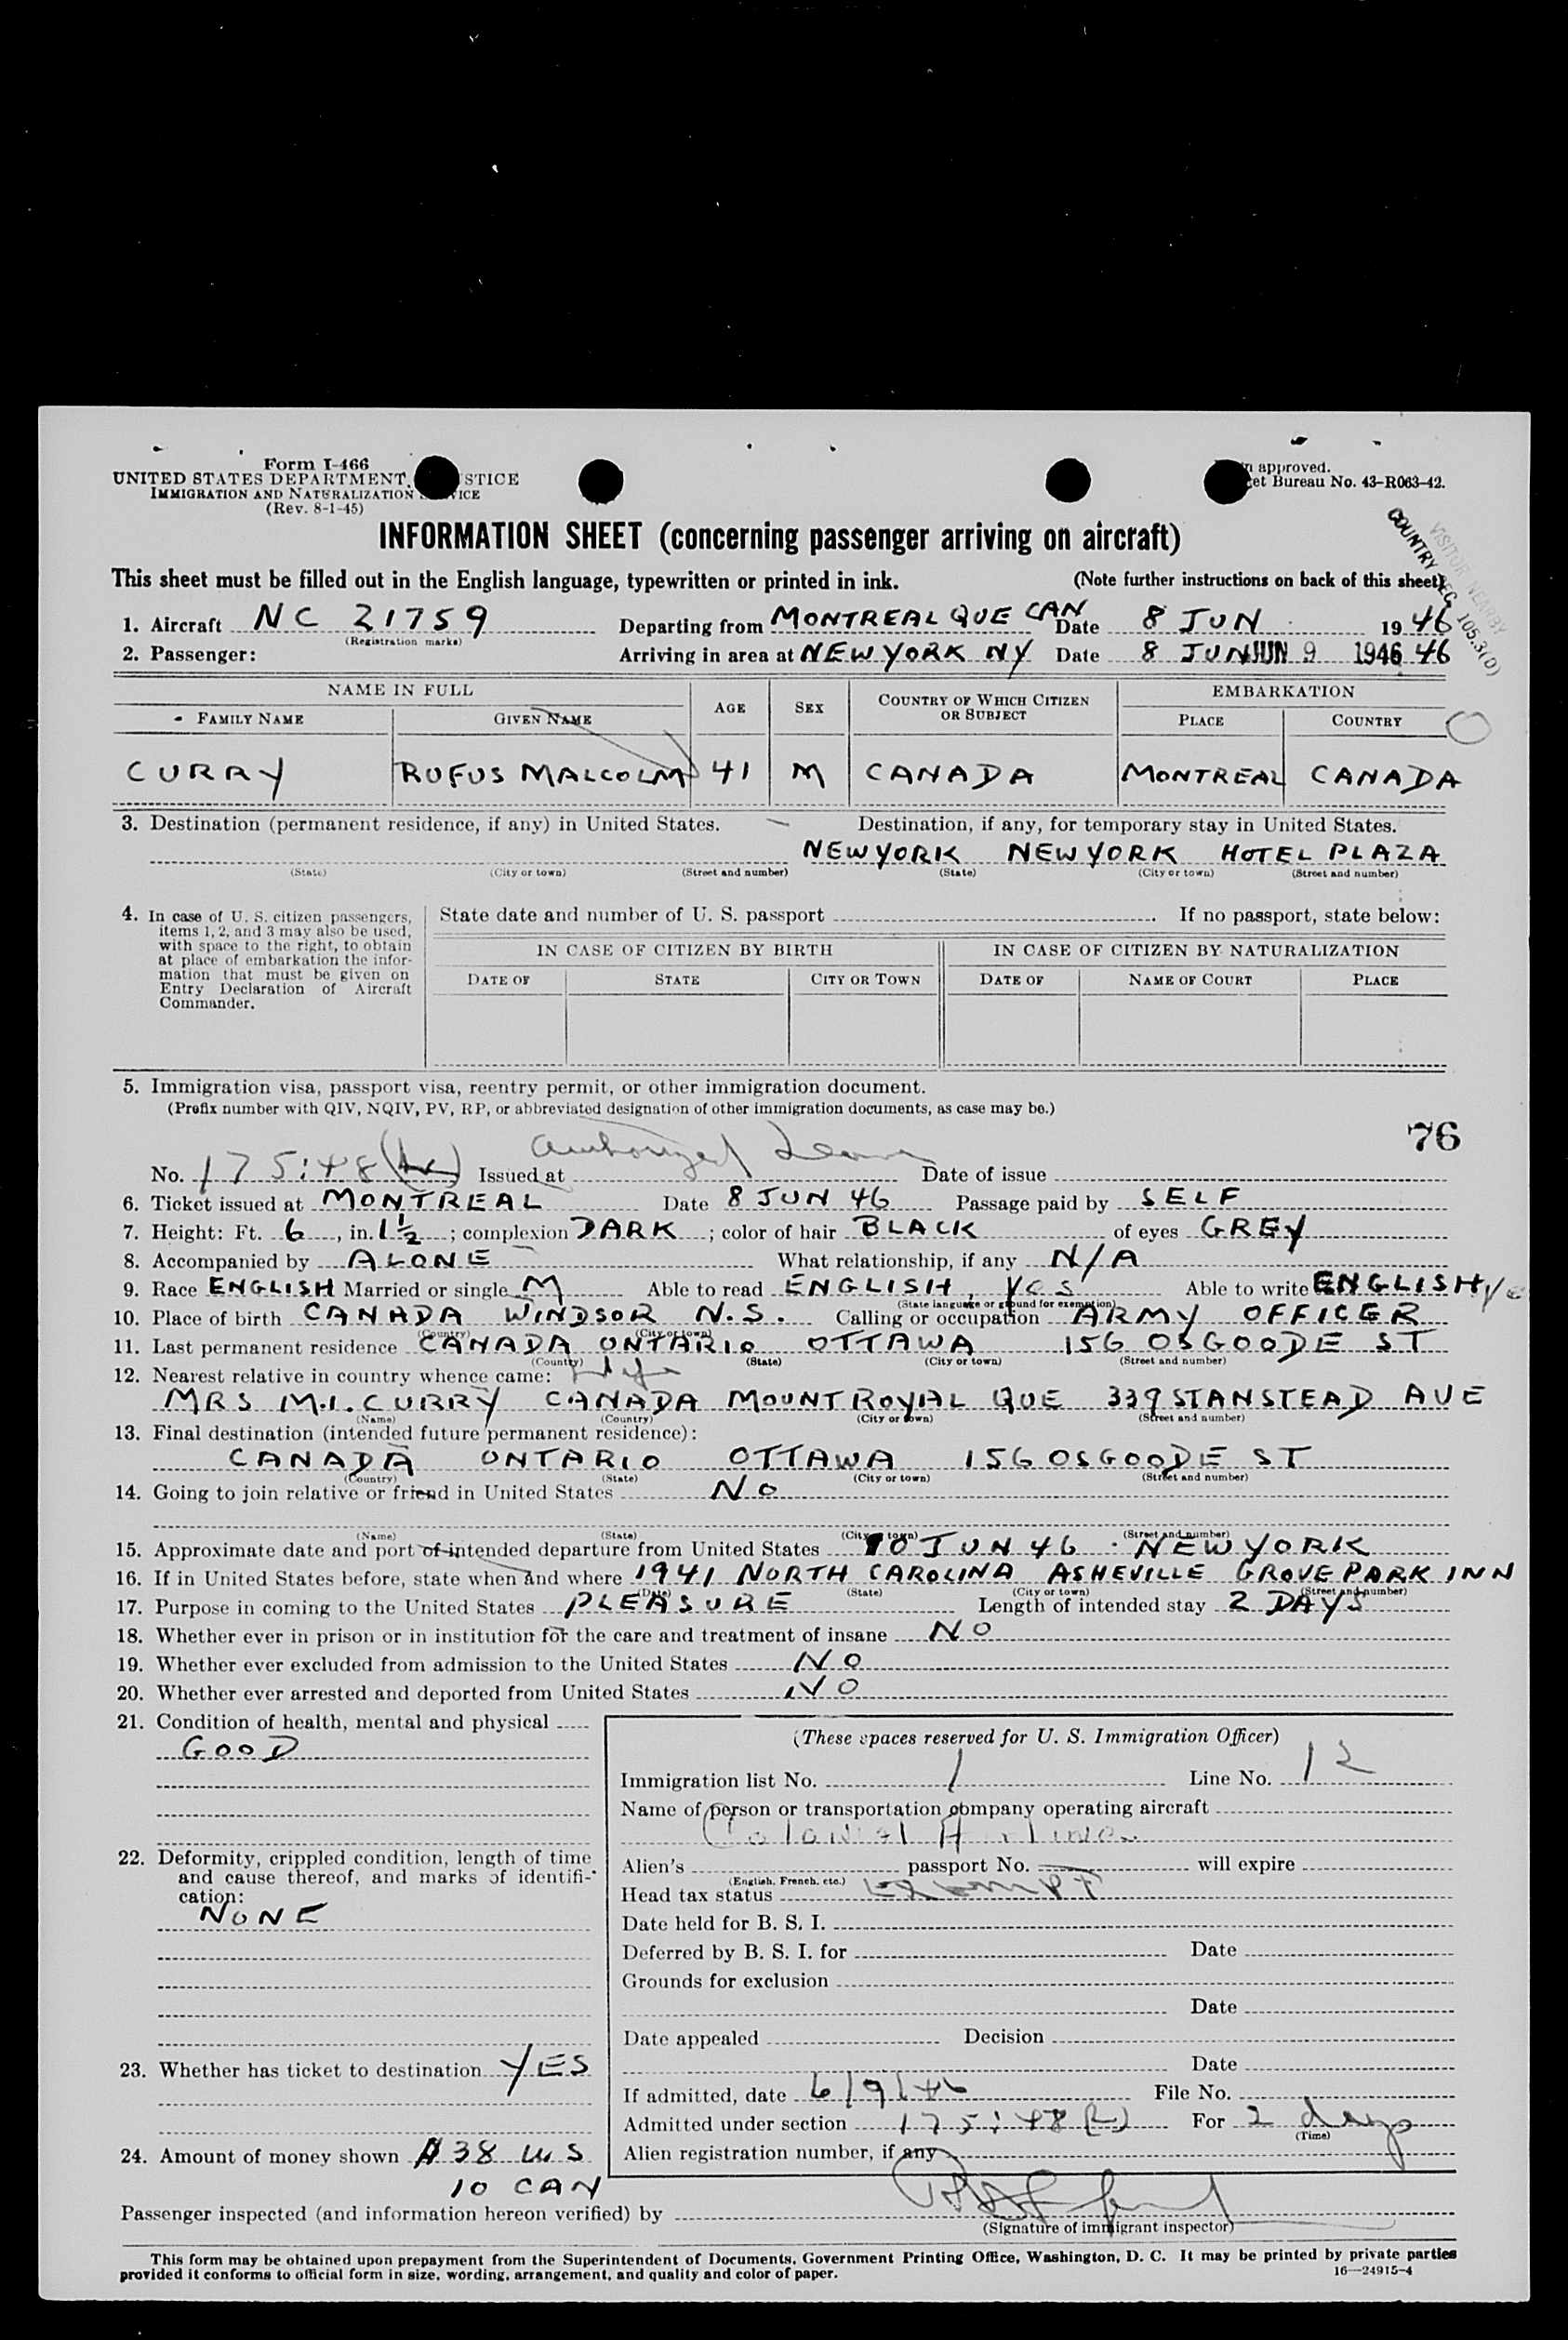 Form I-466
UNITED STATES DEPARTMENT STICE
IMMIGRATION AND NATURALIZATION VICE
(Rev. 8-1-45)
approved.
et Bureau No. 43-R063-42.
INFORMATION SHEET (concerning passenger arriving on aircraft)
COUNTRY REG 105.3(D)
VISITOR NEARBY
This sheet must be filled out in the English language, typewritten or printed in ink. (Note further instructions on back of this sheet)
1. Aircraft NC 21759 Departing from MONTREAL QUE CAN Date 8 JUN 1946
(Registration marks)
2. Passenger: Arriving in area at NEW YORK NY Date 8 JUN JUN 9 1946 46
NAME IN FULL AGE SEX COUNTRY OF WHICH CITIZEN OR SUBJECT EMBARKATION
FAMILY NAME GIVEN NAME PLACE COUNTRY
CURRY RUFUS MALCOLM 41 M CANADA MONTREAL CANADA
3. Destination (permanent residence, if any) in United States. Destination, if any, for temporary stay in United States.
NEW YORK NEW YORK HOTEL PLAZA
(State) (City or town) (Street and number) (State) (City or town) (Street and number)
4. In case of U. S. citizen passengers, items 1, 2, and 3 may also be used, with space to the right, to obtain at place of embarkation the information that must be given on Entry Declaration of Aircraft Commander.
State date and number of U. S. passport . If no passport, state below:
IN CASE OF CITIZEN BY BIRTH IN CASE OF CITIZEN BY NATURALIZATION
DATE OF STATE CITY OR TOWN DATE OF NAME OF COURT PLACE
5. Immigration visa, passport visa, reentry permit, or other immigration document.
(Prefix number with QIV, NQIV, PV, RP, or abbreviated designation of other immigration documents, as case may be.)
76
No. 175:48 Issued at Authorized Leave Date of issue
6. Ticket issued at MONTREAL Date 8 JUN 46 Passage paid by SELF
7. Height: Ft. 6, in. 1½; complexion DARK; color of hair BLACK of eyes GREY
8. Accompanied by ALONE What relationship, if any N/A
9. Race ENGLISH Married or single M Able to read ENGLISH, yes Able to write ENGLISH
(State language or ground for exemption)
10. Place of birth CANADA WINDSOR N.S. Calling or occupation ARMY OFFICER
(Country) (City or town)
11. Last permanent residence CANADA ONTARIO OTTAWA 156 OSGOODE ST
(Country) (State) (City or town) (Street and number)
12. Nearest relative in country whence came: wife
MRS M.I. CURRY CANADA MOUNT ROYAL QUE 339 STANSTEAD AVE
(Name) (Country) (City or town) (Street and number)
13. Final destination (intended future permanent residence):
CANADA ONTARIO OTTAWA 156 OSGOODE ST
(Country) (State) (City or town) (Street and number)
14. Going to join relative or friend in United States NO
(Name) (State) (City or town) (Street and number)
15. Approximate date and port of intended departure from United States 10 JUN 46 · NEW YORK
16. If in United States before, state when and where 1941 NORTH CAROLINA ASHEVILLE GROVE PARK INN
(Date) (State) (City or town) (Street and number)
17. Purpose in coming to the United States PLEASURE Length of intended stay 2 DAYS
18. Whether ever in prison or in institution for the care and treatment of insane NO
19. Whether ever excluded from admission to the United States NO
20. Whether ever arrested and deported from United States NO
21. Condition of health, mental and physical
GOOD
22. Deformity, crippled condition, length of time and cause thereof, and marks of identification:
NONE
23. Whether has ticket to destination YES
24. Amount of money shown $38 US
10 CAN
(These spaces reserved for U. S. Immigration Officer)
Immigration list No. 1 Line No. 12
Name of person or transportation company operating aircraft
Colonial Airlines
Alien's passport No. will expire
(English, French, etc.)
Head tax status exempt
Date held for B. S. I.
Deferred by B. S. I. for Date
Grounds for exclusion
Date
Date appealed Decision
Date
If admitted, date 6/9/46 File No.
Admitted under section 175:48 For 2 days
(Time)
Alien registration number, if any
Passenger inspected (and information hereon verified) by
(Signature of immigrant inspector)
This form may be obtained upon prepayment from the Superintendent of Documents, Government Printing Office, Washington, D. C. It may be printed by private parties
provided it conforms to official form in size, wording, arrangement, and quality and color of paper.
16—24915-4